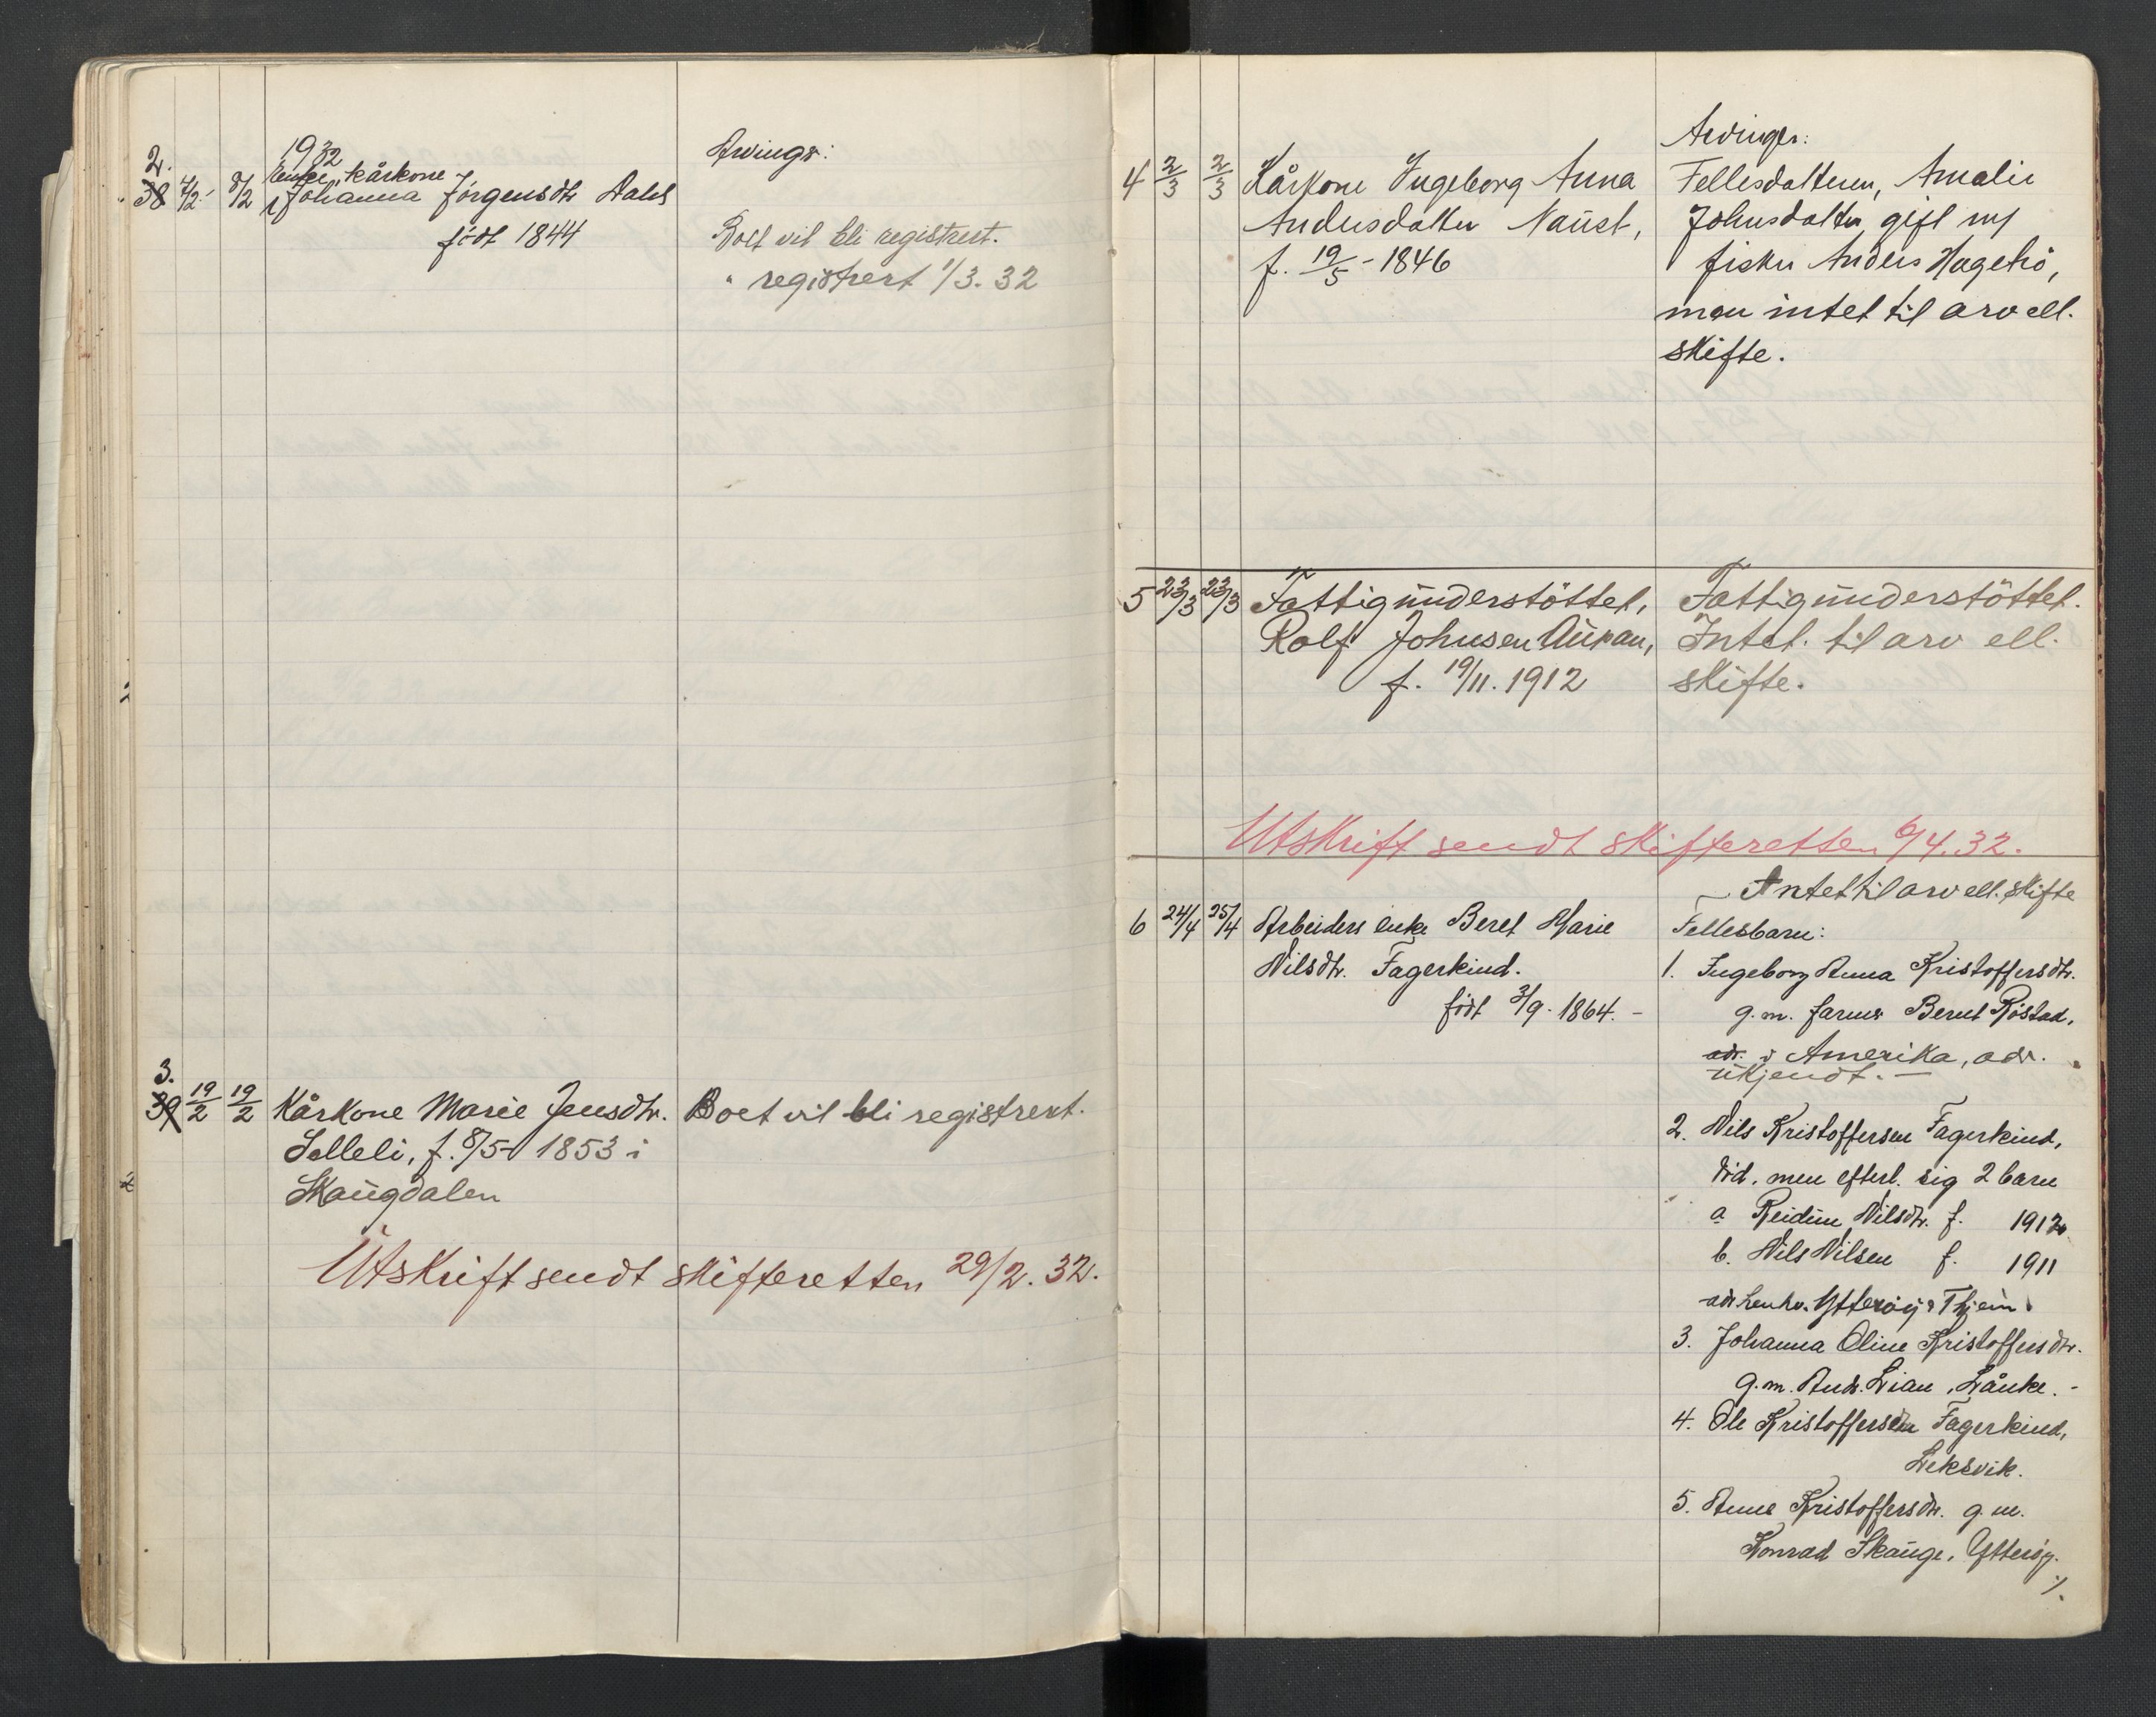 1932
2.
38 4/2 - 8/2 Enke, kårkone
Johanna Jörgensdtr Dahl
födt 1844
Arvinger:
Boet vil bli registrert.
" registrert 1/3. 32
3.
39 19/2 19/2 Kårkone Marie Jensdtr. Boet vil bli registrert.
Selleli, f. 8/5- 1853 i
Skaugdalen
Utskrift sendt skifteretten 29/2. 32.
4 2/3 2/3 Kårkone Ingeborg Anna
Andersdatter Naust,
f. 19/5 - 1846
Arvinger:
Fellesdatteren, Amalie
Johnsdatter, gift m/
fisker Anders Hagehö,
men intet til arv ell.
skifte.
5 23/3 23/3 Fattigunderstöttet,
Rolf Johnsen Aunan,
f. 19/11. 1912
Fattigunderstöttet.
Intet til arv ell.
skifte.
Utskrift sendt skifteretten 6/4. 32.
6 24/4 25/4 Arbeiders enke Beret Marie
Nilsdtr. Fagerkind.
födt 3/9. 1864. -
Intet til arv ell. skifte
Fellesbarn:
1. Ingeborg Anna Kristoffersdtr.
g. m. farmer Bernt Röstad,
adr. i Amerika, adr.
ukjendt. -
2. Nils Kristoffersen Fagerkind,
död, men efterl. sig 2 barn
a Reidun Nilsdtr. f. 1912
b. Nils Nilsen f. 1911
adr. henhv. Ytteröy &
3. Johanna Oline Kristoffersdtr.
g. m. Andr. Lian, Lånke. -
4. Ole Kristoffersen Fagerkind,
Leksvik.
5. Anne Kristoffersdtr. g. m.
Konrad Skauge, Ytteröy.
./.